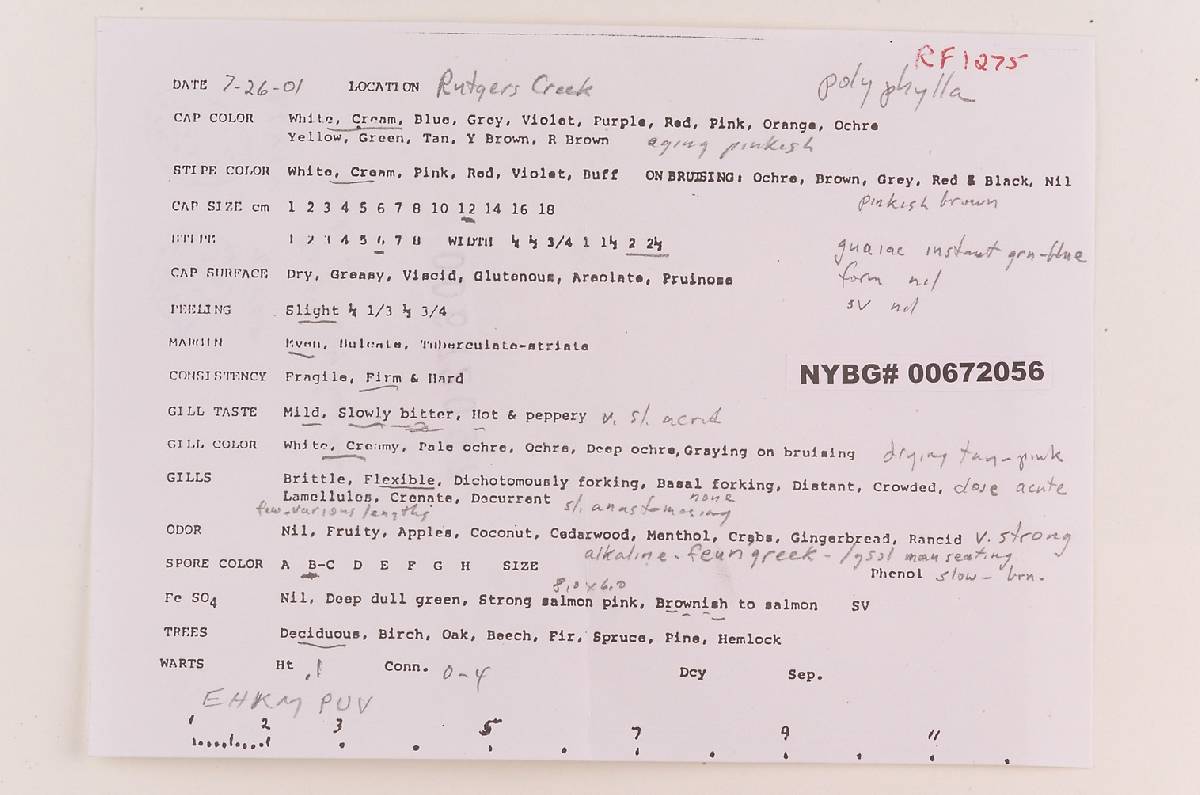 RF1275
DATE 7-26-01 LOCATION Rutgers Creek polyphylla
CAP COLOR White, Cream, Blue, Grey, Violet, Purple, Red, Pink, Orange, Ochre
Yellow, Green, Tan, Y Brown, R Brown aging pinkish
STIPE COLOR White, Cream, Pink, Red, Violet, Buff ON BRUISING: Ochre, Brown, Grey, Red & Black, Nil
pinkish brown
CAP SIZE cm 1 2 3 4 5 6 7 8 10 12 14 16 18
STIPE 1 2 3 4 5 6 7 8 WIDTH ¼ ½ 3/4 1 1½ 2 2½
guaiac instant grn-blue
CAP SURFACE Dry, Greasy, Viscid, Glutenous, Areolate, Pruinose
form nil
SV nil
PEELING Slight ¼ 1/3 ½ 3/4
MARGIN Even, Sulcate, Tuberculate-striate
CONSISTENCY Fragile, Firm & Hard
NYBG# 00672056
GILL TASTE Mild, Slowly bitter, Hot & peppery v. sl. acrid
GILL COLOR White, Creamy, Pale ochre, Ochre, Deep ochre, Graying on bruising drying tan-pink
GILLS Brittle, Flexible, Dichotomously forking, Basal forking, Distant, Crowded, close acute
Lamellules, Crenate, Decurrent sl. anastomosing none
few-various lengths
ODOR Nil, Fruity, Apples, Coconut, Cedarwood, Menthol, Crabs, Gingerbread, Rancid v. strong
alkaline - feungreek - lysol
SPORE COLOR A B-C D E F G H SIZE 8.0 x 6.0
Phenol slow - brn.
Fe SO4 Nil, Deep dull green, Strong salmon pink, Brownish to salmon SV
TREES Deciduous, Birch, Oak, Beech, Fir, Spruce, Pine, Hemlock
WARTS Ht .1 Conn. 0-4 Dcy Sep.
EHKM PUV
1 2 3 5 7 9 11